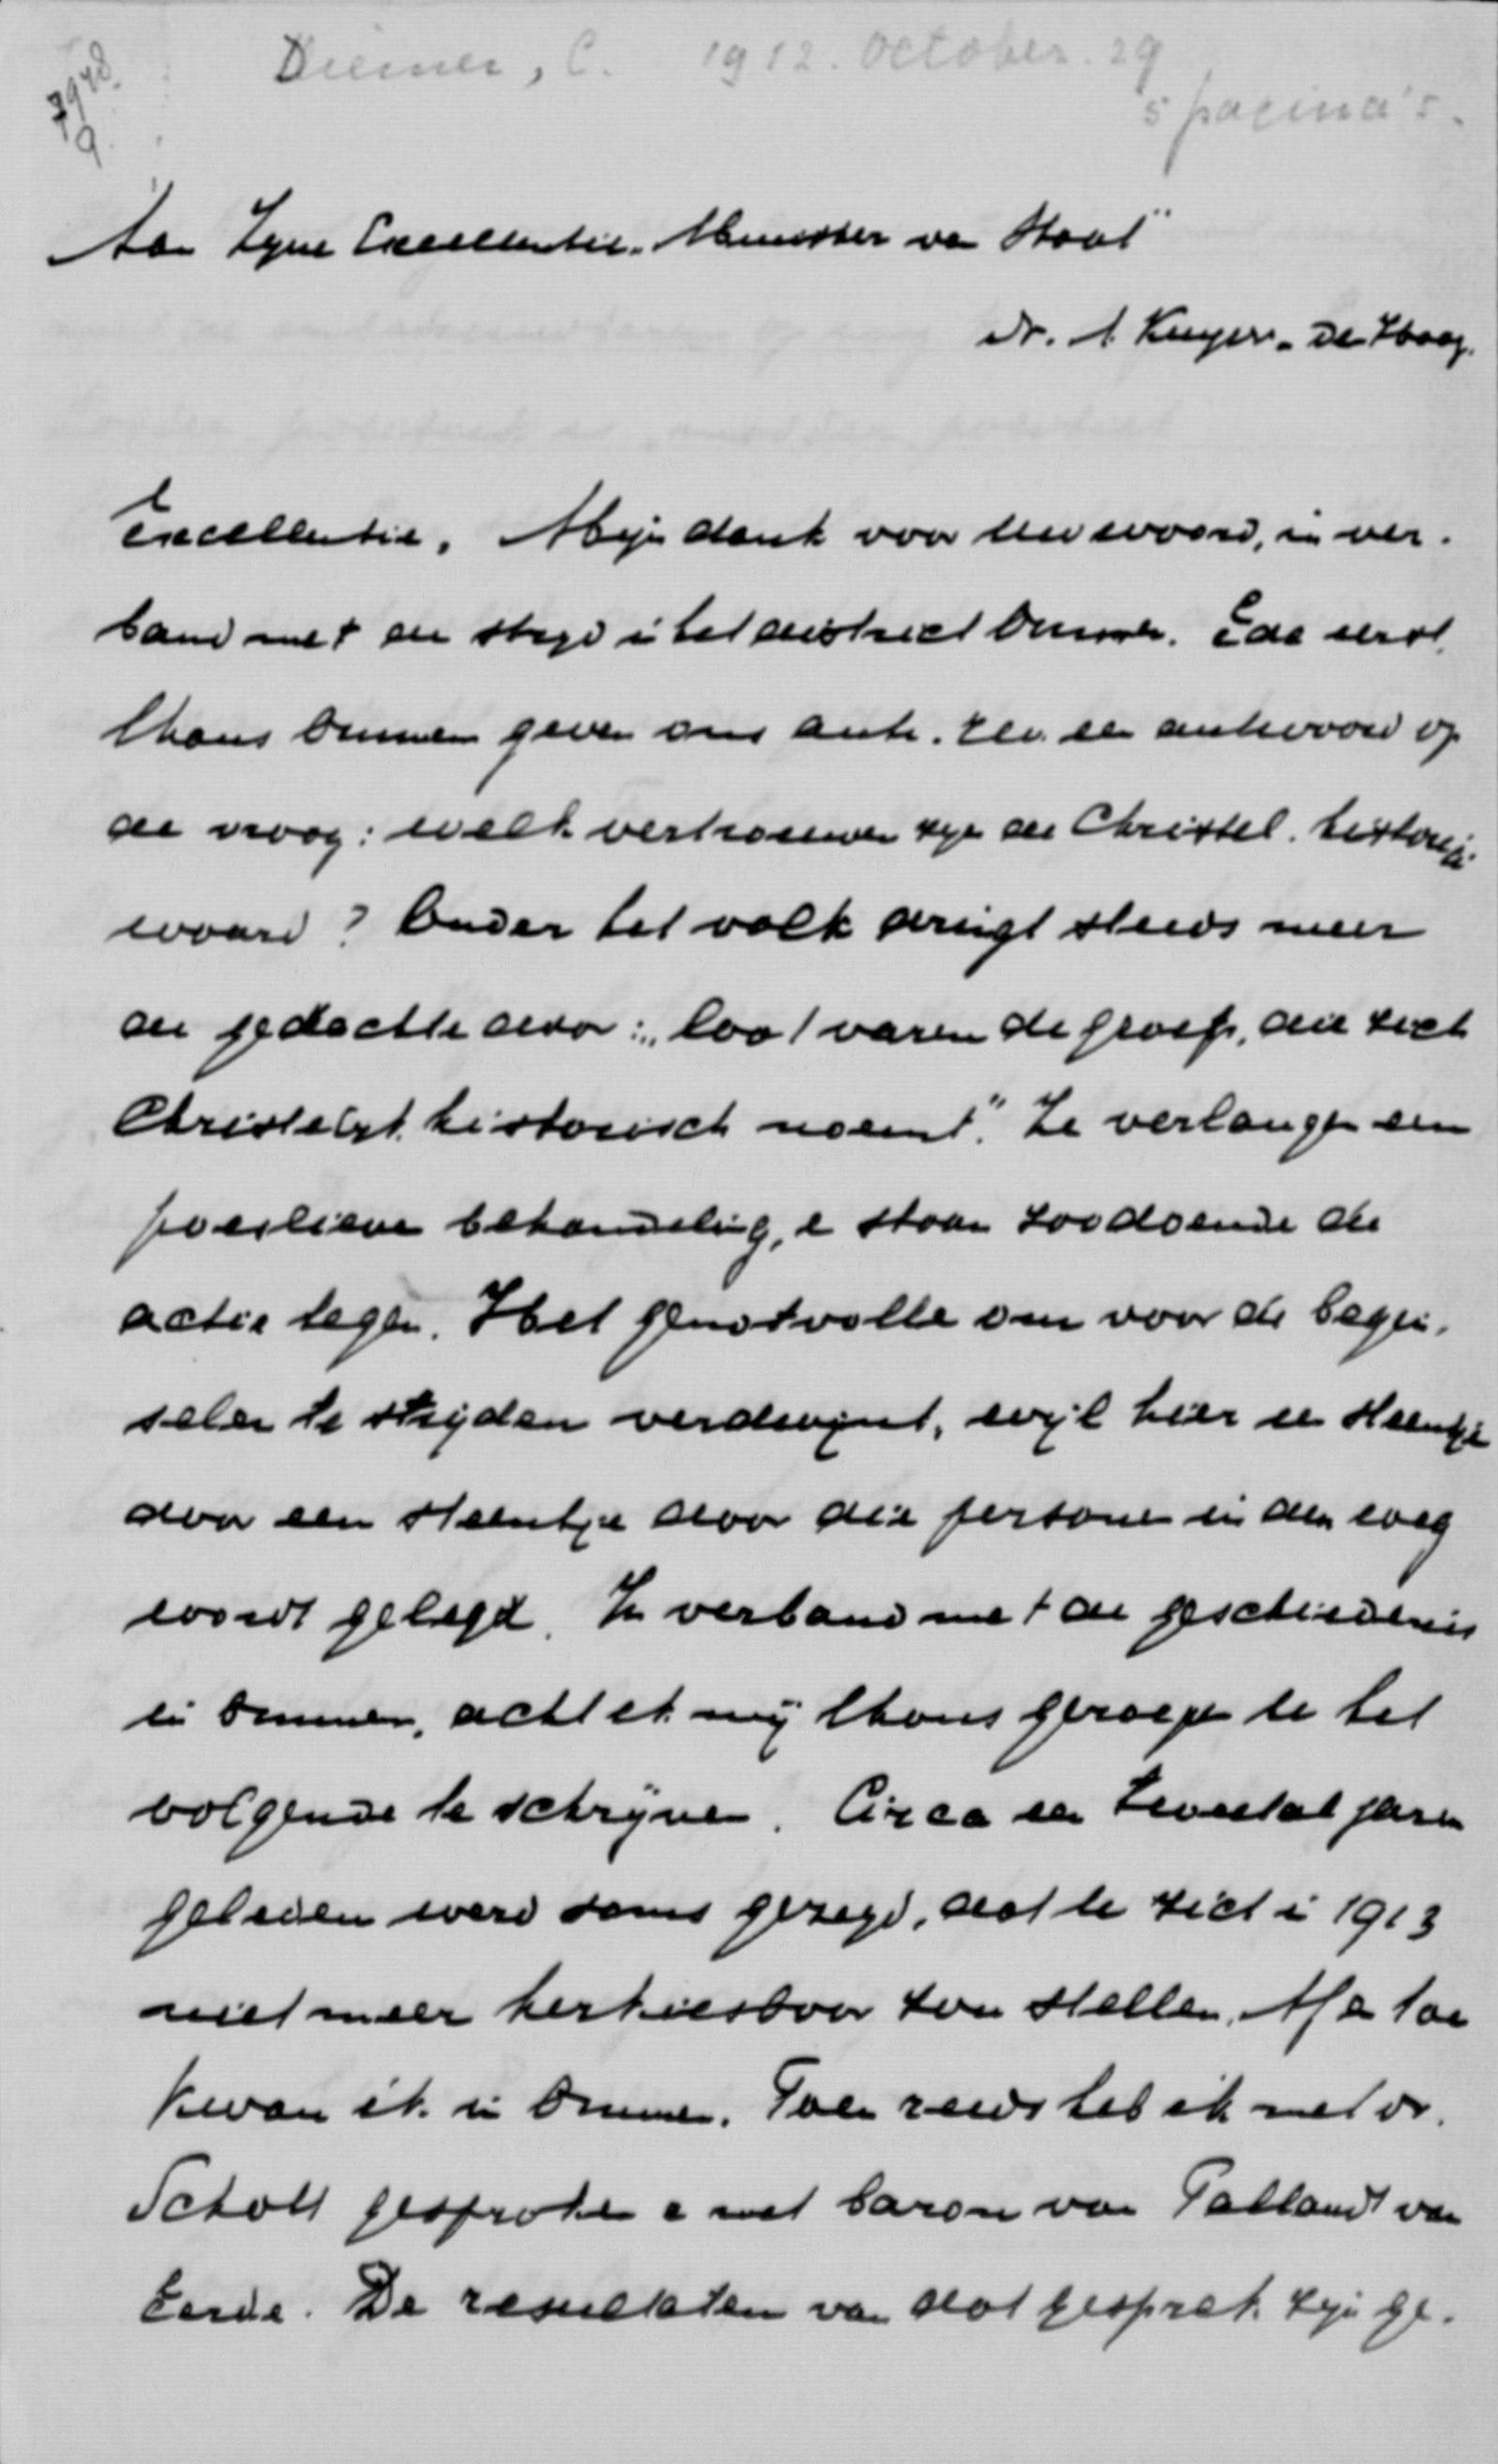 7948
9
Diemer, C. 1912. October. 29
5 pagina's.
Aan Zyne Excellentie. Minister van Staat
Dr. A. Kuyper. Den Haag.
Excellentie, Mijn dank voor Uw woord, in ver-
band met de strijd in het district Ommen. Ede eerst,
thans Ommen geven ons anti. rev. een antwoord op
de vraag: welk vertrouwen zijn de Christel. historisch
waard? Onder het volk dringt steeds meer
de gedachte door: "laat varen de groep, die zich
Christelijk historisch noemt". Ze verlangen een
positieve behandeling, e staan zoodoende de
actie tegen. Het genotvolle om voor de begin-
selen te strijden verdwijnt, wijl hier een steentje
daar een steentje door die personen in den weg
wordt gelegd. In verband met de geschiedenis
in Ommen, acht ik mij thans geroepen het
volgende te schrijven. Circa een zevental jaren
geleden werd soms gezegd, dat te zich in 1913
niet meer herkiesbaar zou stellen. Af en toe
kwam ik in Ommen. Toen reeds heb ik met Dr.
Scholl gesproken e met baron van Palland van
Eerde. De resultaten van dat gesprek zijn ge-